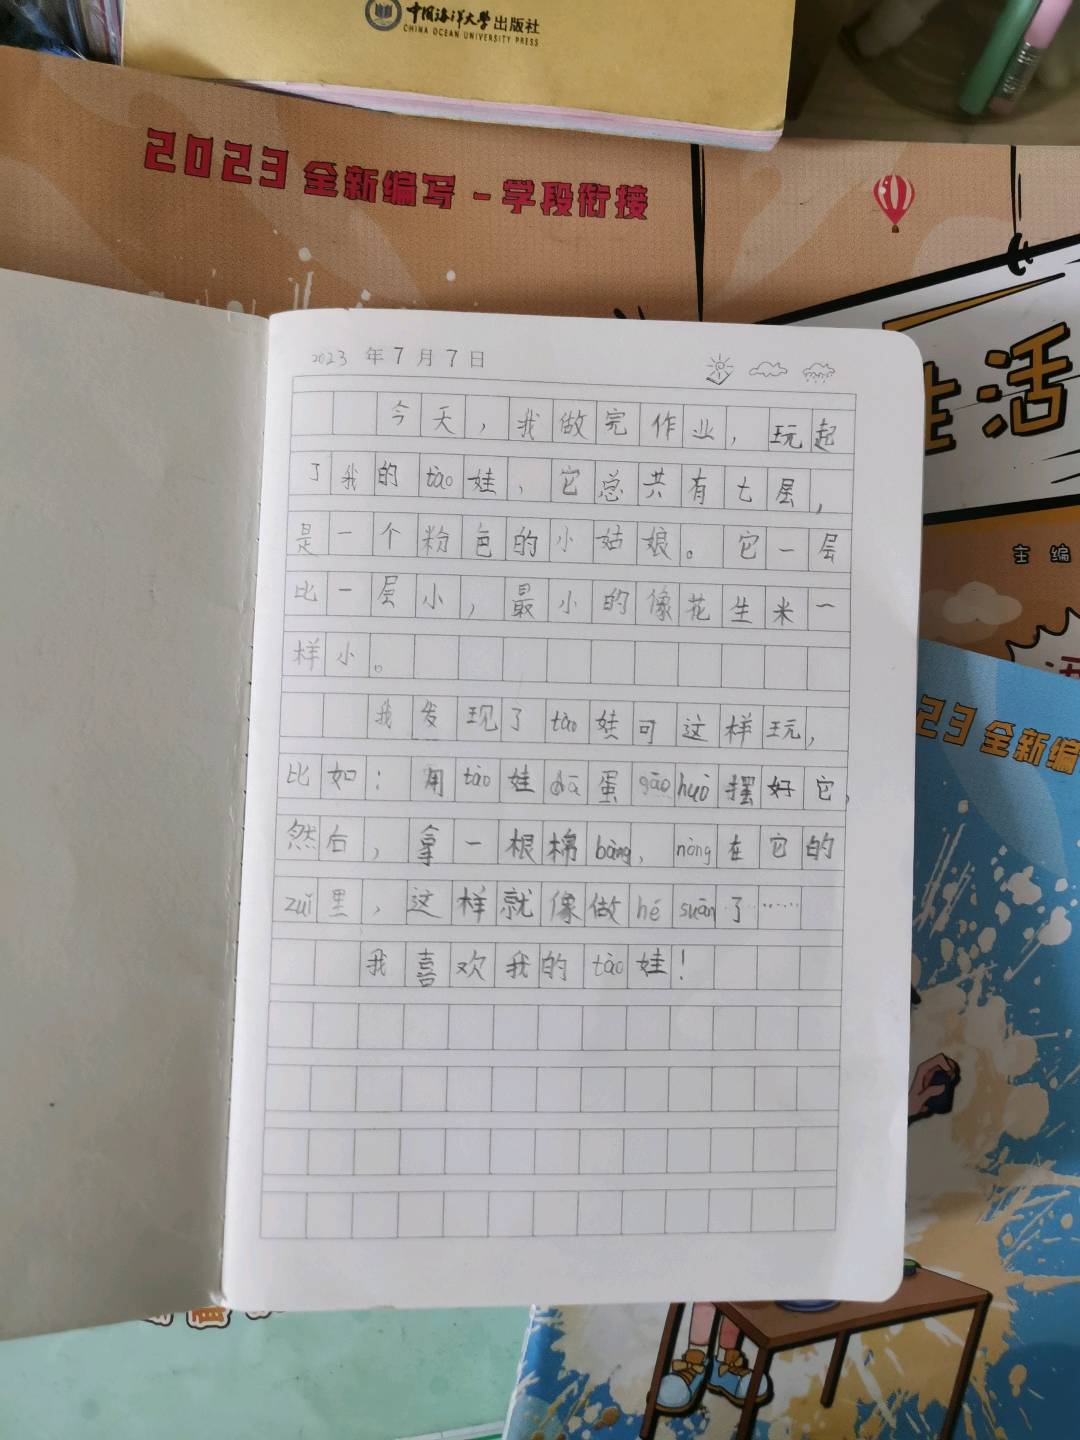 中国海洋大学出版社
CHINA OCEAN UNIVERSITY PRESS
2023全新编写-学段衔接
生活
主编
23全新编
2023年7月7日
今天，我做完作业，玩起
了我的tào娃，它总共有七层，
是一个粉色的小姑娘。它一层
比一层小，最小的像花生米一
样小。
我发现了tào娃可这样玩，
比如：用tào娃 蛋gāo huò摆好它，
然后，拿一根棉bàng，nòng在它的
zuǐ里，这样就像做hé suān了……
我喜欢我的tào娃！